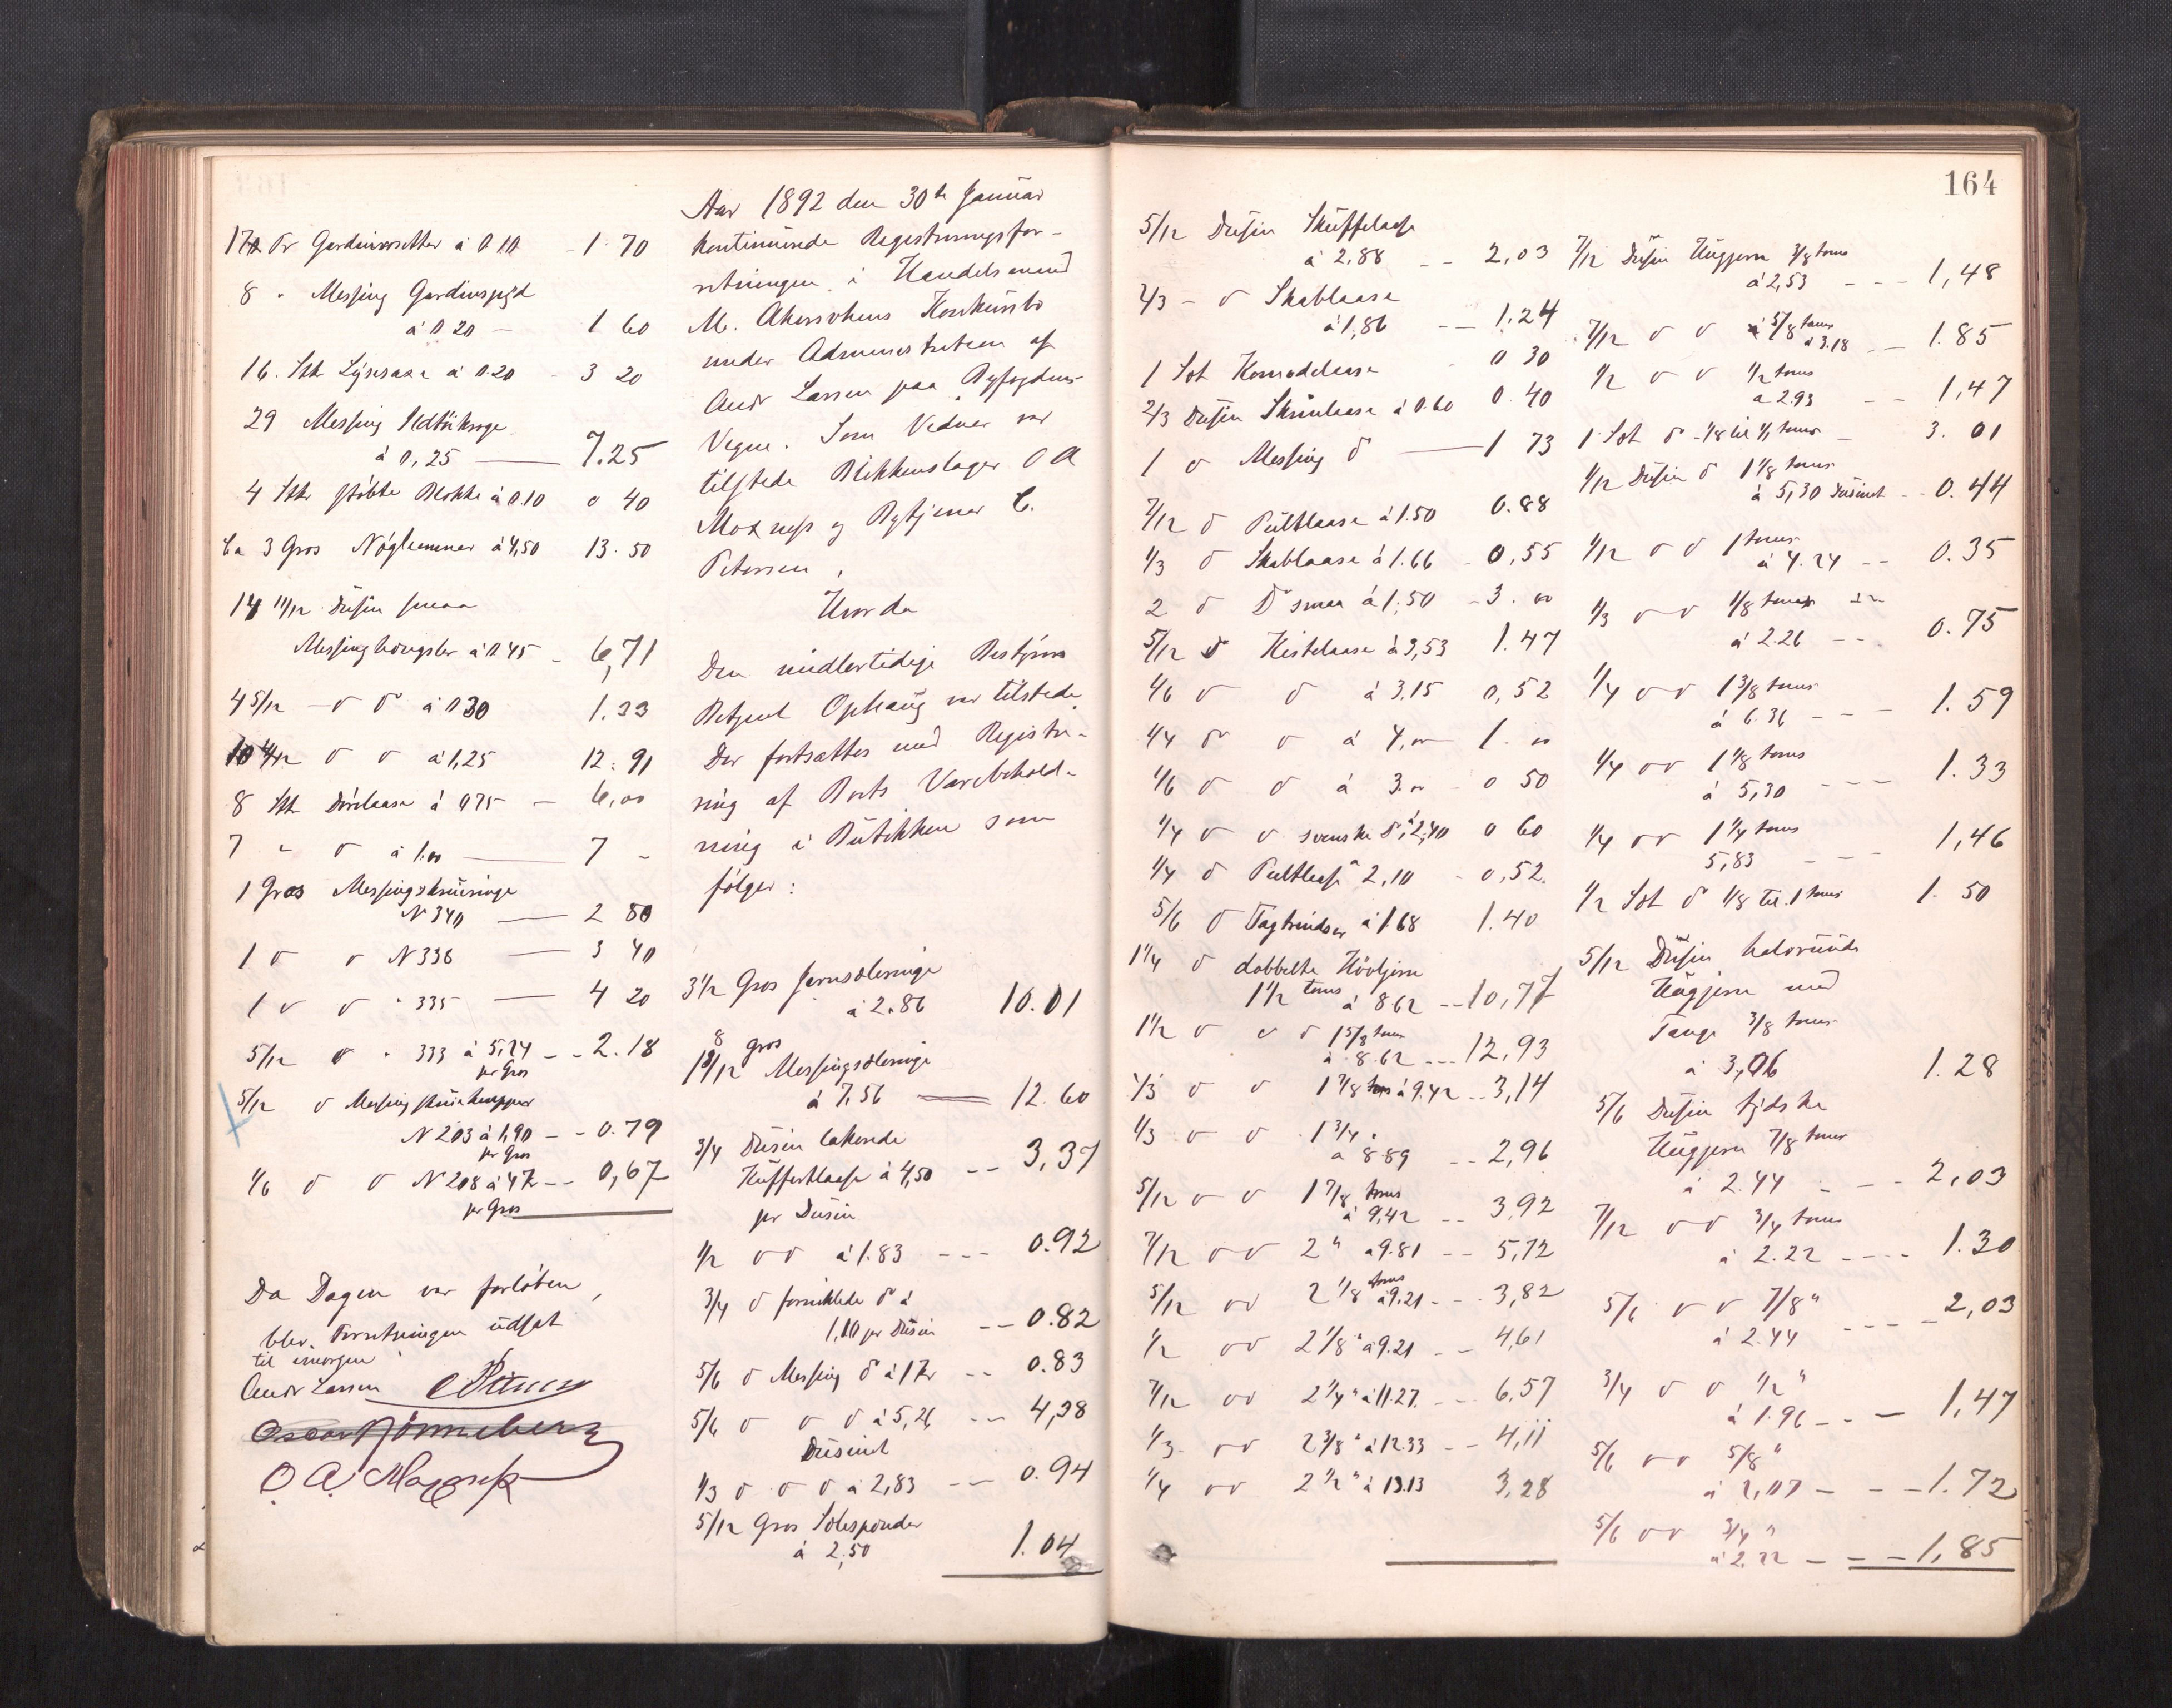 17 Pr Gardinrosetter à 0.10 - 1.70
8 " Messing Gardinspyd
à 0.20 - 1 60
16. Stk Lysesaxe à 0.20 - 3 20
29 Messing
à 0,25 — 7.25
4 Stkr støbte Blokke à 0.10 0 40
Ca 3 Gros à 4,50 13.50
14 11/12 Dusin smaa
Messinghængsler à 0.45 - 6,71
4 5/12 - d d à 0.30 1.33
10 4/12 d d à 1,25 12.91
8 Stk Dørlaase à 0.75 - 6,00
7 " d à 1.00 — 7 -
1 Gros Messingskrueringe
N 340 — 2 80
1 d d N 336 — 3 40
1 d d " 335 — 4 20
5/12 d " 333 à 5,24 - - 2.18
pr Gros
5/12 d Messing
N 203 à 1,90 - - 0.79
pr Gros
1/6 d d N 208 à 4 Kr - - 0,67
pr Gros
Da Dagen var forløben,
blev Forretningen udsat
til imorgen
Andr Larsen
Oscar Rönneberg
O. A. Moxness
Aar 1892 den 30te Januar
kontinuerede Registreringsfor-
retningen i Handelsmand
M. Akersokens Konkursbo
under Administration af
Andr Larsen paa Byfogdens
Vegne. Som Vidner var
tilstede Blikkenslager O A
Moxness og Bytjener C.
Petersen.
Hvorda
Den midlertidige Bestyrer
Betjent Ophaug var tilstede.
Der fortsattes med Registre-
ring af Boets Varebehold-
ning i Butikken som
følger:
3 1/2 Gros Jernsøleringe
à 2.86 10.01
8 gros
1 8/12 Messingsøleringe
à 7,56 — 12.60
3/4 Dusin lakerede
Kuffertlaase à 4,50 - - 3,37
pr Dusin
1/2 d d à 1.83 - - - 0.92
3/4 d forniklede d à
1,10 pr Dusin - - 0.82
5/6 d Messing d à 1 Kr - - 0.83
5/6 d d d à 5,26 - - 4,38
Dusinet
1/3 d d d à 2,83 - - 0.94
5/12 Gros Sølespænder
à 2,50 1.04
164
5/12 Dusin Skuffelaase
à 2,88 - - 2,03
2/3 - d Skablaase
à 1,86 - - 1.24
1 Sæt Komodelaase 0 30
2/3 Dusin Skrinlaase à 0.60 0.40
1 d Messing d — 1 73
7/12 d Pultlaase à 1.50 0.88
1/3 d Skablaase à 1.66 - 0,55
2 d D smaa à 1,50 - 3.00
5/12 d Kistelaase à 3,53 1.47
1/6 d d à 3.15 0,52
1/4 d d à 4,00 1.00
1/6 d d à 3.00 - 0 50
1/4 d d svenske d à 2,40 0 60
1/4 d Pultlaase à 2,10 - 0,52.
5/6 d Tagtrindser à 1.68 1.40
1 1/4 d dobbelte Høvljern
1 1/2 toms à 8.62 - - 10,77
1 1/2 d d d 1 5/8 tom
à 8.62 - - - 12,93
1/3 d d 1 7/8 toms à 9.42 - - 3,14
1/3 d d 1 3/4 "
à 8.89 - - 2,96
5/12 d d 1 7/8 toms
à 9,42 - - 3,92
7/12 d d 2 " à 9.81 - - 5,72
5/12 d d 2 1/8 toms à 9.21 - - 3,82
1/2 d d 2 1/8 " à 9.21 - - 4,61
7/12 d d 2 1/4 " à 11.27. - - - 6.57
1/3 d d 2 3/8 " à 12.33 - - 4,11
1/4 d d 2 1/2 " à 13.13 3,28
7/12 Dusin Hugjern 3/8 toms
à 2,53 - - - 1,48
7/12 d d 5/8 toms à 3.18 - - 1.85
1/2 d d 1/2 toms
à 2.93 - - 1,47
1 Sæt d 1/8 til 1/1 toms - 3.01
1/12 Dusin d 1 1/8 toms
à 5,30 Dusinet - - 0.44
1/12 d d 1 toms
à 4.24 - - 0.35
1/3 d d 1/8 toms
à 2.26 - - 0.75
1/4 d d 1 3/8 toms
à 6.36 - - - 1.59
1/4 d d 1 1/8 toms
à 5,30 - - - 1.33
1/4 d d 1 1/4 toms
5,83 - - - 1,46
1/2 Sæt d 1/8 til 1 toms 1.50
5/12 Dusin halvrunde
Hugjern med
Tange 3/8 toms
à 3,06 1.28
5/6 Dusin tydske
Hugjern 7/8 toms
à 2.44 - - - 2,03
7/12 d d 3/4 toms
à 2.22 - - - - 1.30
5/6 d d 7/8 "
à 2.44 - - - - 2,03
3/4 d d 1/2 "
à 1.96 - - - 1,47
5/6 d d 5/8 "
à 2,07 - - - 1.72
5/6 d d 3/4 "
à 2.22 - - - 1,85